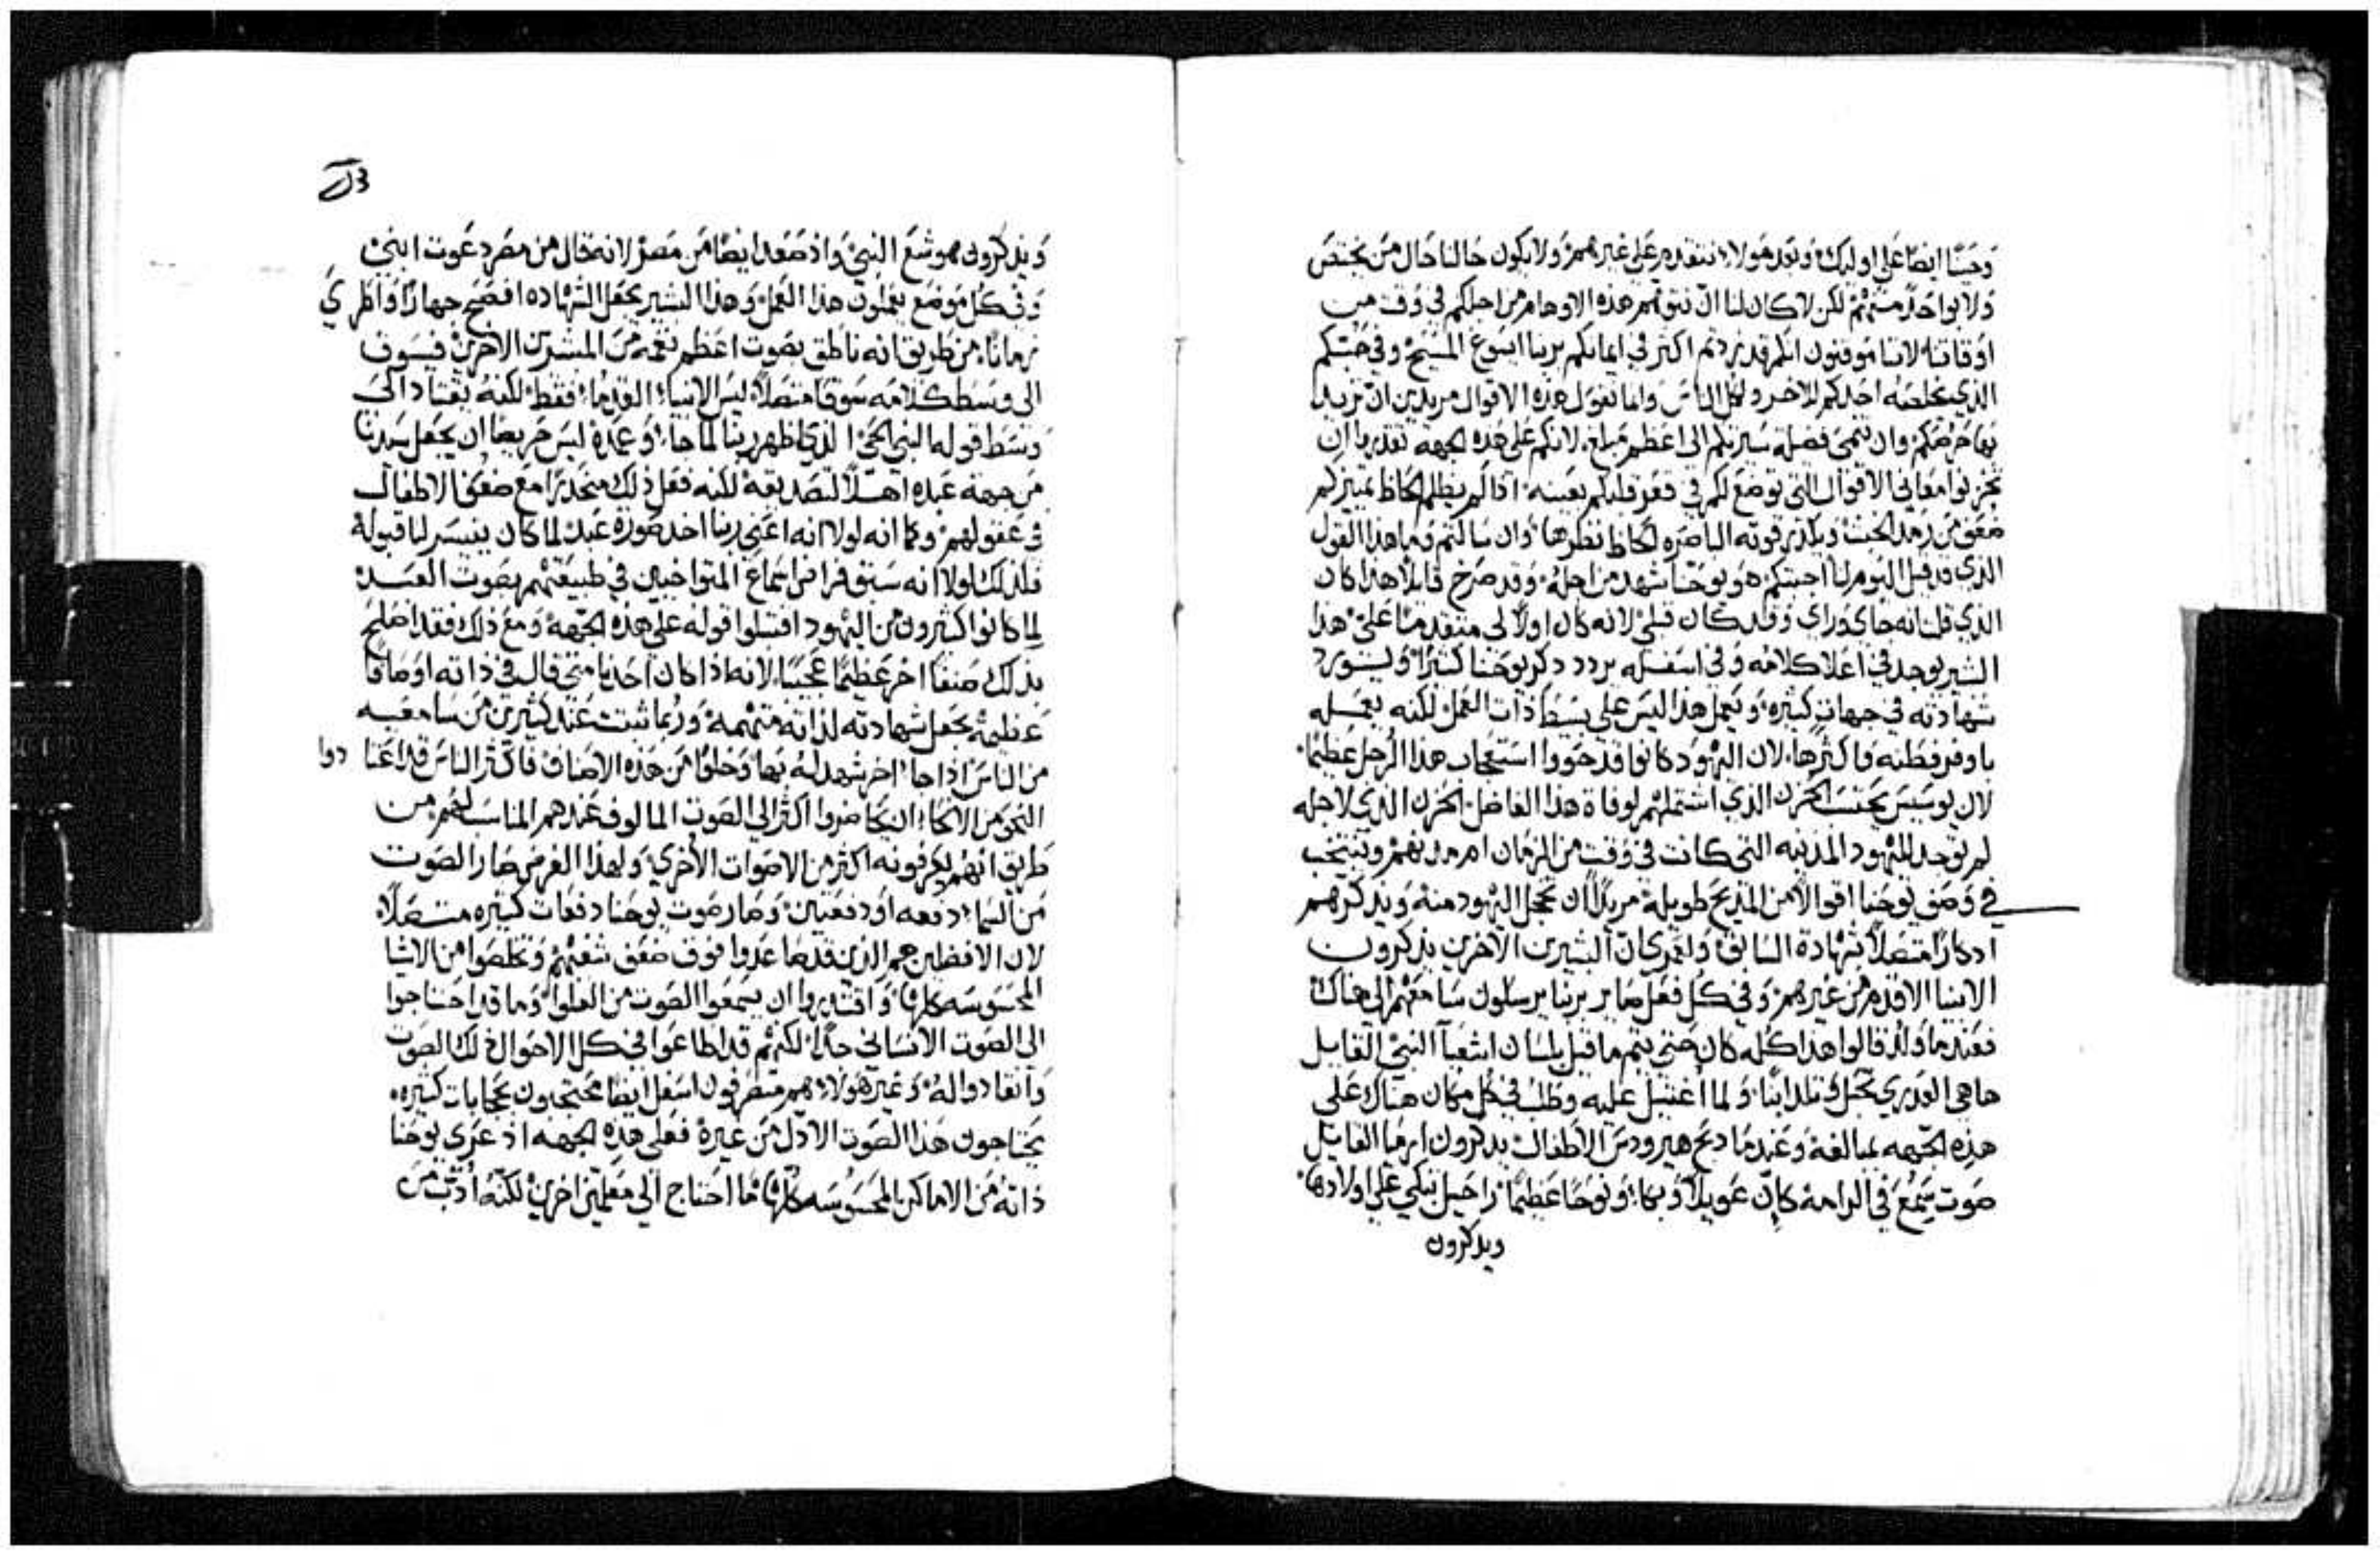 وحبنا ايضا علي اوليك وبعد هولاء نتقدم علي غيرهم ولا يكون حالنا حال من يختص
ولا بواحد منهم لكن لا كان لنا ان نتوهم هذه الاوهام من اجلكم في وقت من
اوقاتنا لاننا موقنون انكم قد زدتم اكثر في ايمانكم بربنا ايسوع المسيح وفي حبكم
الذي يخلصه احدكم للاخر ولكل الناس وانما نقول هذه الاقوال مريدين ان نزيد
بها حرصكم وان تنمي فضيلة سيرتكم الي اعظم مبلغ لانكم علي هذه الجهة تقدروا ان
تخزنوا معاني الاقوال التي توضع لكم في قعر قلبكم بعينه اذا لم يظلم لحاظ تمييزكم
ضعف من رمد الخبث ويكدر قوته الباصره لحاظ نظرها وان سالتم وما هذا القول
الذي قد قيل اليوم لنا اجبتكم هو يوحنا شهد من اجله وقد صرخ قايلا هذا كان
الذي قلت انه جاي وراي وقد كان قبلي لانه كان اولا لي متقدما علي هذا
البشير يوجد في اعلا كلامه وفي اسفله يردد ذكر يوحنا كثيرا ويورد
شهادته في جهات كثيره ويعمل هذا ليس علي بسيط ذات العمل لكنه يعمله
باوفر فطنه واكثرها لان اليهود كانوا قد حووا استعجاب هذا الرجل عظيما
لان يوسيبس يحتسب الحزن الذي اشتملهم لوفاة هذا الفاضل الحزن الذي لاجله
لم توجد لليهود المدينه التي كانت في وقت من الزمان ام مدنهم وينتخب
في وصف يوحنا اقوالا من المديح طويلة مريدا ان يخجل اليهود منه ويذكرهم
اذكارا متصلا بشهادة السابق ولعمري ان البشيرين الاخرين يذكرون
الانبيا الاقدم من غيرهم وفي كل فعل صاير بربنا يرسلون سامعهم الي هناك
فعندما ولد قالوا هذا كله كان حتي يتم ما قيل بلسان اشعيا النبي القايل
ها هي العذري تحبل وتلد ابنا ولما اغتيل عليه وطلب في كل مكان هناك علي
هذه الجهه بمبالغة وعندما ذبح هيرودس الاطفال يذكرون ارميا القايل
صوت سمع في الرامة كان عويلا وبكا ونوحا عظيما راحيل تبكي علي اولادها
ويذكرون
ويذكرون هوشع النبي واذ صعد ايضا من مصر لانه قال من مصر دعوت ابني
وفي كل موضع يعملون هذا العمل وهذا البشير يجعل الشهاده افصح جهارا واطري
زمانا من طريق انه ناطق بصوت اعظم نغمة من المبشرين الاخرين فيسوق
الي وسط كلامه سوقا متصلا ليس الانبيا القدما فقط لكنه يقتاد الي
وسط قوله النبي الحي الذي اظهر ربنا لما جا وعمده ليس حريصا ان يجعل سيدنا
من جهة عبده اهلا لتصديقه لكنه فعل ذلك منحدرا مع ضعف الاطفال
في عقولهم وكما انه لولا انه اعني ربنا اخذ صورة عبد لما كان يتيسر لنا قبوله
فلذلك لولا انه سبق فراض استماع المتواخيين في طبيعتهم بصوت العبد
لما كانوا كثيرون من اليهود اقتبلوا قوله علي هذه الجهة ومع ذلك فقد اصلح
بذلك صنفا اخر عظيما عجيبا لانه اذا كان احدنا متي قال في ذاته اوصافا
عظيمة يجعل شهادته لذاته متهمة وربما شنت عند كثيرين من سامعيه
من الناس اذا جا اخر شهد له بها وخلوا من هذه الاصناف فاكثر الناس قد اعتادوا
النحو من الانحا ان يحاضروا اكثر الي الصوت المالوف عندهم المناسب لهم من
طريق انهم يعرفونه اكثر من الاصوات الاخري ولهذا الغرض صار الصوت
من السما دفعه او دفعتين وصار صوت يوحنا دفعات كثيره متصلا
لان الافضلين هم الذين قدما عدوا فوق ضعف شعبهم وتخلصوا من الاشيا
المحسوسه كلها واقتدروا ان يسمعوا الصوت من العلوا وما قد احتاجوا
الي الصوت الانساني جدا لكنهم قد اطاعوا في كل الاحوال ذلك الصوت
وانقادوا له وغير هولاء هم متصرفون اسفل ايضا محتجبون بحجابات كثيره
يحتاجون هذا الصوت الاول من غيره فعلي هذه الجهه اذ عري يوحنا
ذاته من الاماكن المحسوسه كلها ما احتاج الي معلمين اخرين لكنه ادب من